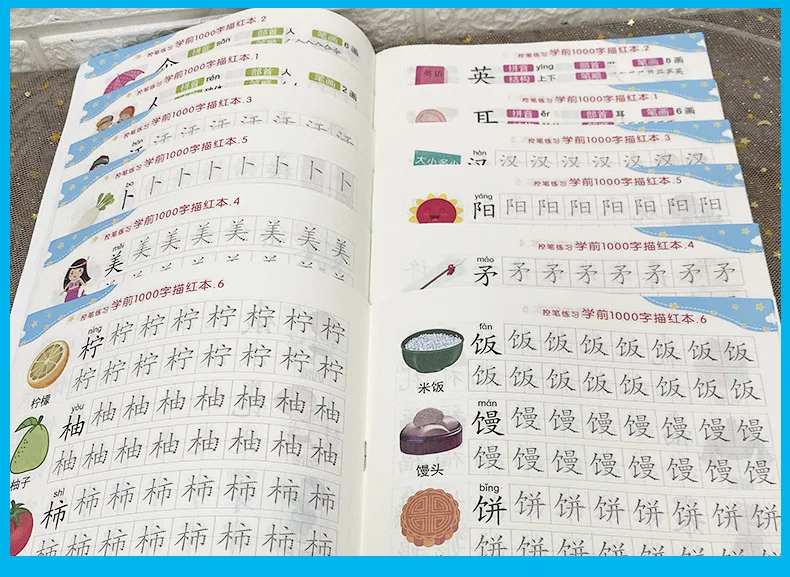 控笔练习 学前1000字描红本.2
sǎn
拼音 部首 人 笔画 6画
控笔练习 学前1000字描红本.1
人 拼音 rén 部首 人 笔画 2画
控笔练习 学前1000字描红本.3
hàn
汗 汗 汗 汗 汗 汗 汗 汗
控笔练习 学前1000字描红本.5
bo
卜 卜 卜 卜 卜 卜 卜 卜
控笔练习 学前1000字描红本.4
měi
美 美 美 美 美 美 美 美
控笔练习 学前1000字描红本.6
níng
柠 柠 柠 柠 柠 柠 柠 柠
柠 柠 柠 柠 柠 柠 柠 柠
柠檬
yòu
柚 柚 柚 柚 柚 柚 柚 柚
柚 柚 柚 柚 柚 柚 柚 柚
柚子
shì
柿 柿 柿 柿 柿 柿 柿 柿
柿 柿 柿 柿 柿 柿 柿 柿
控笔练习 学前1000字描红本.2
英语
英 拼音 yīng 部首 艹 笔画 8画
结构 上下 笔顺
控笔练习 学前1000字描红本.1
耳 拼音 ěr 部首 耳 笔画 6画
控笔练习 学前1000字描红本.3
大小多少
hàn
汉 汉 汉 汉 汉 汉 汉 汉
控笔练习 学前1000字描红本.5
yáng
阳 阳 阳 阳 阳 阳 阳 阳
控笔练习 学前1000字描红本.4
máo
矛 矛 矛 矛 矛 矛 矛 矛
控笔练习 学前1000字描红本.6
fàn
饭 饭 饭 饭 饭 饭 饭 饭
饭 饭 饭 饭 饭 饭 饭 饭
米饭
mán
馒 馒 馒 馒 馒 馒 馒 馒
馒 馒 馒 馒 馒 馒 馒 馒
馒头
bǐng
饼 饼 饼 饼 饼 饼 饼 饼
饼 饼 饼 饼 饼 饼 饼 饼